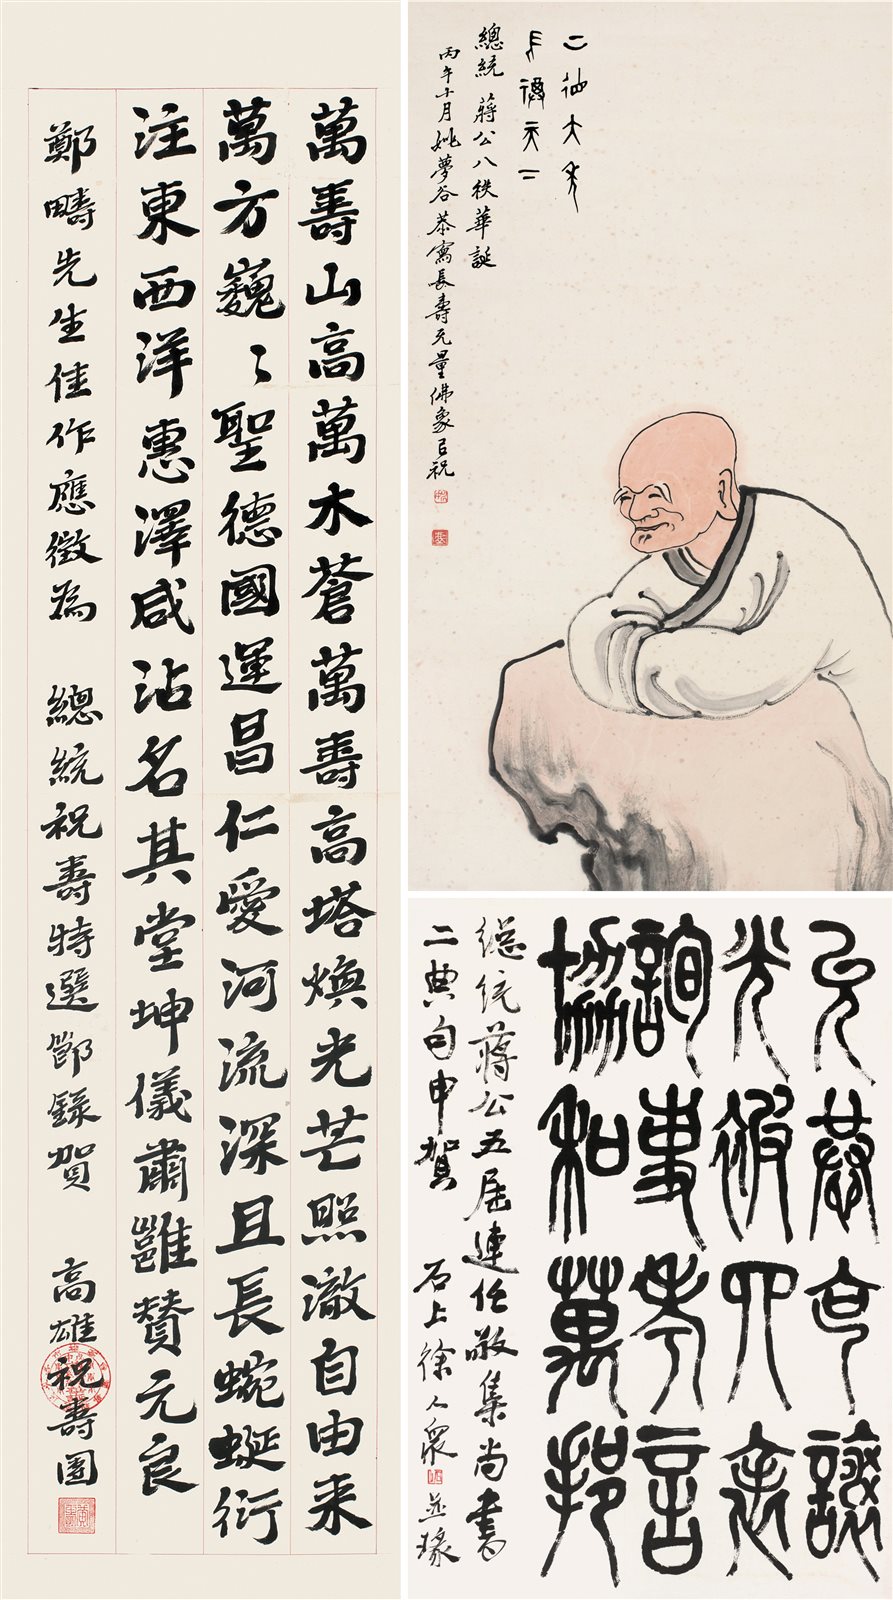 萬壽山高萬木蒼萬壽高塔煥光芒照澈自由来
萬方巍〻聖德國運昌仁愛河流深且長蜿蜒衍
注東西洋惠澤咸沾名其堂坤儀肅雝贊元良
鄭疇先生佳作應徵為 總統祝壽特選節錄賀 高雄祝壽團
總統 蔣公八秩華誕
丙午十月姚夢谷恭寫長壽无量佛象㠯祝
允恭克讓
光被四表
詢事考言
協和萬邦
總統蔣公五屆連任敬集尚書
二典句申賀 石上徐人眾 並瑑